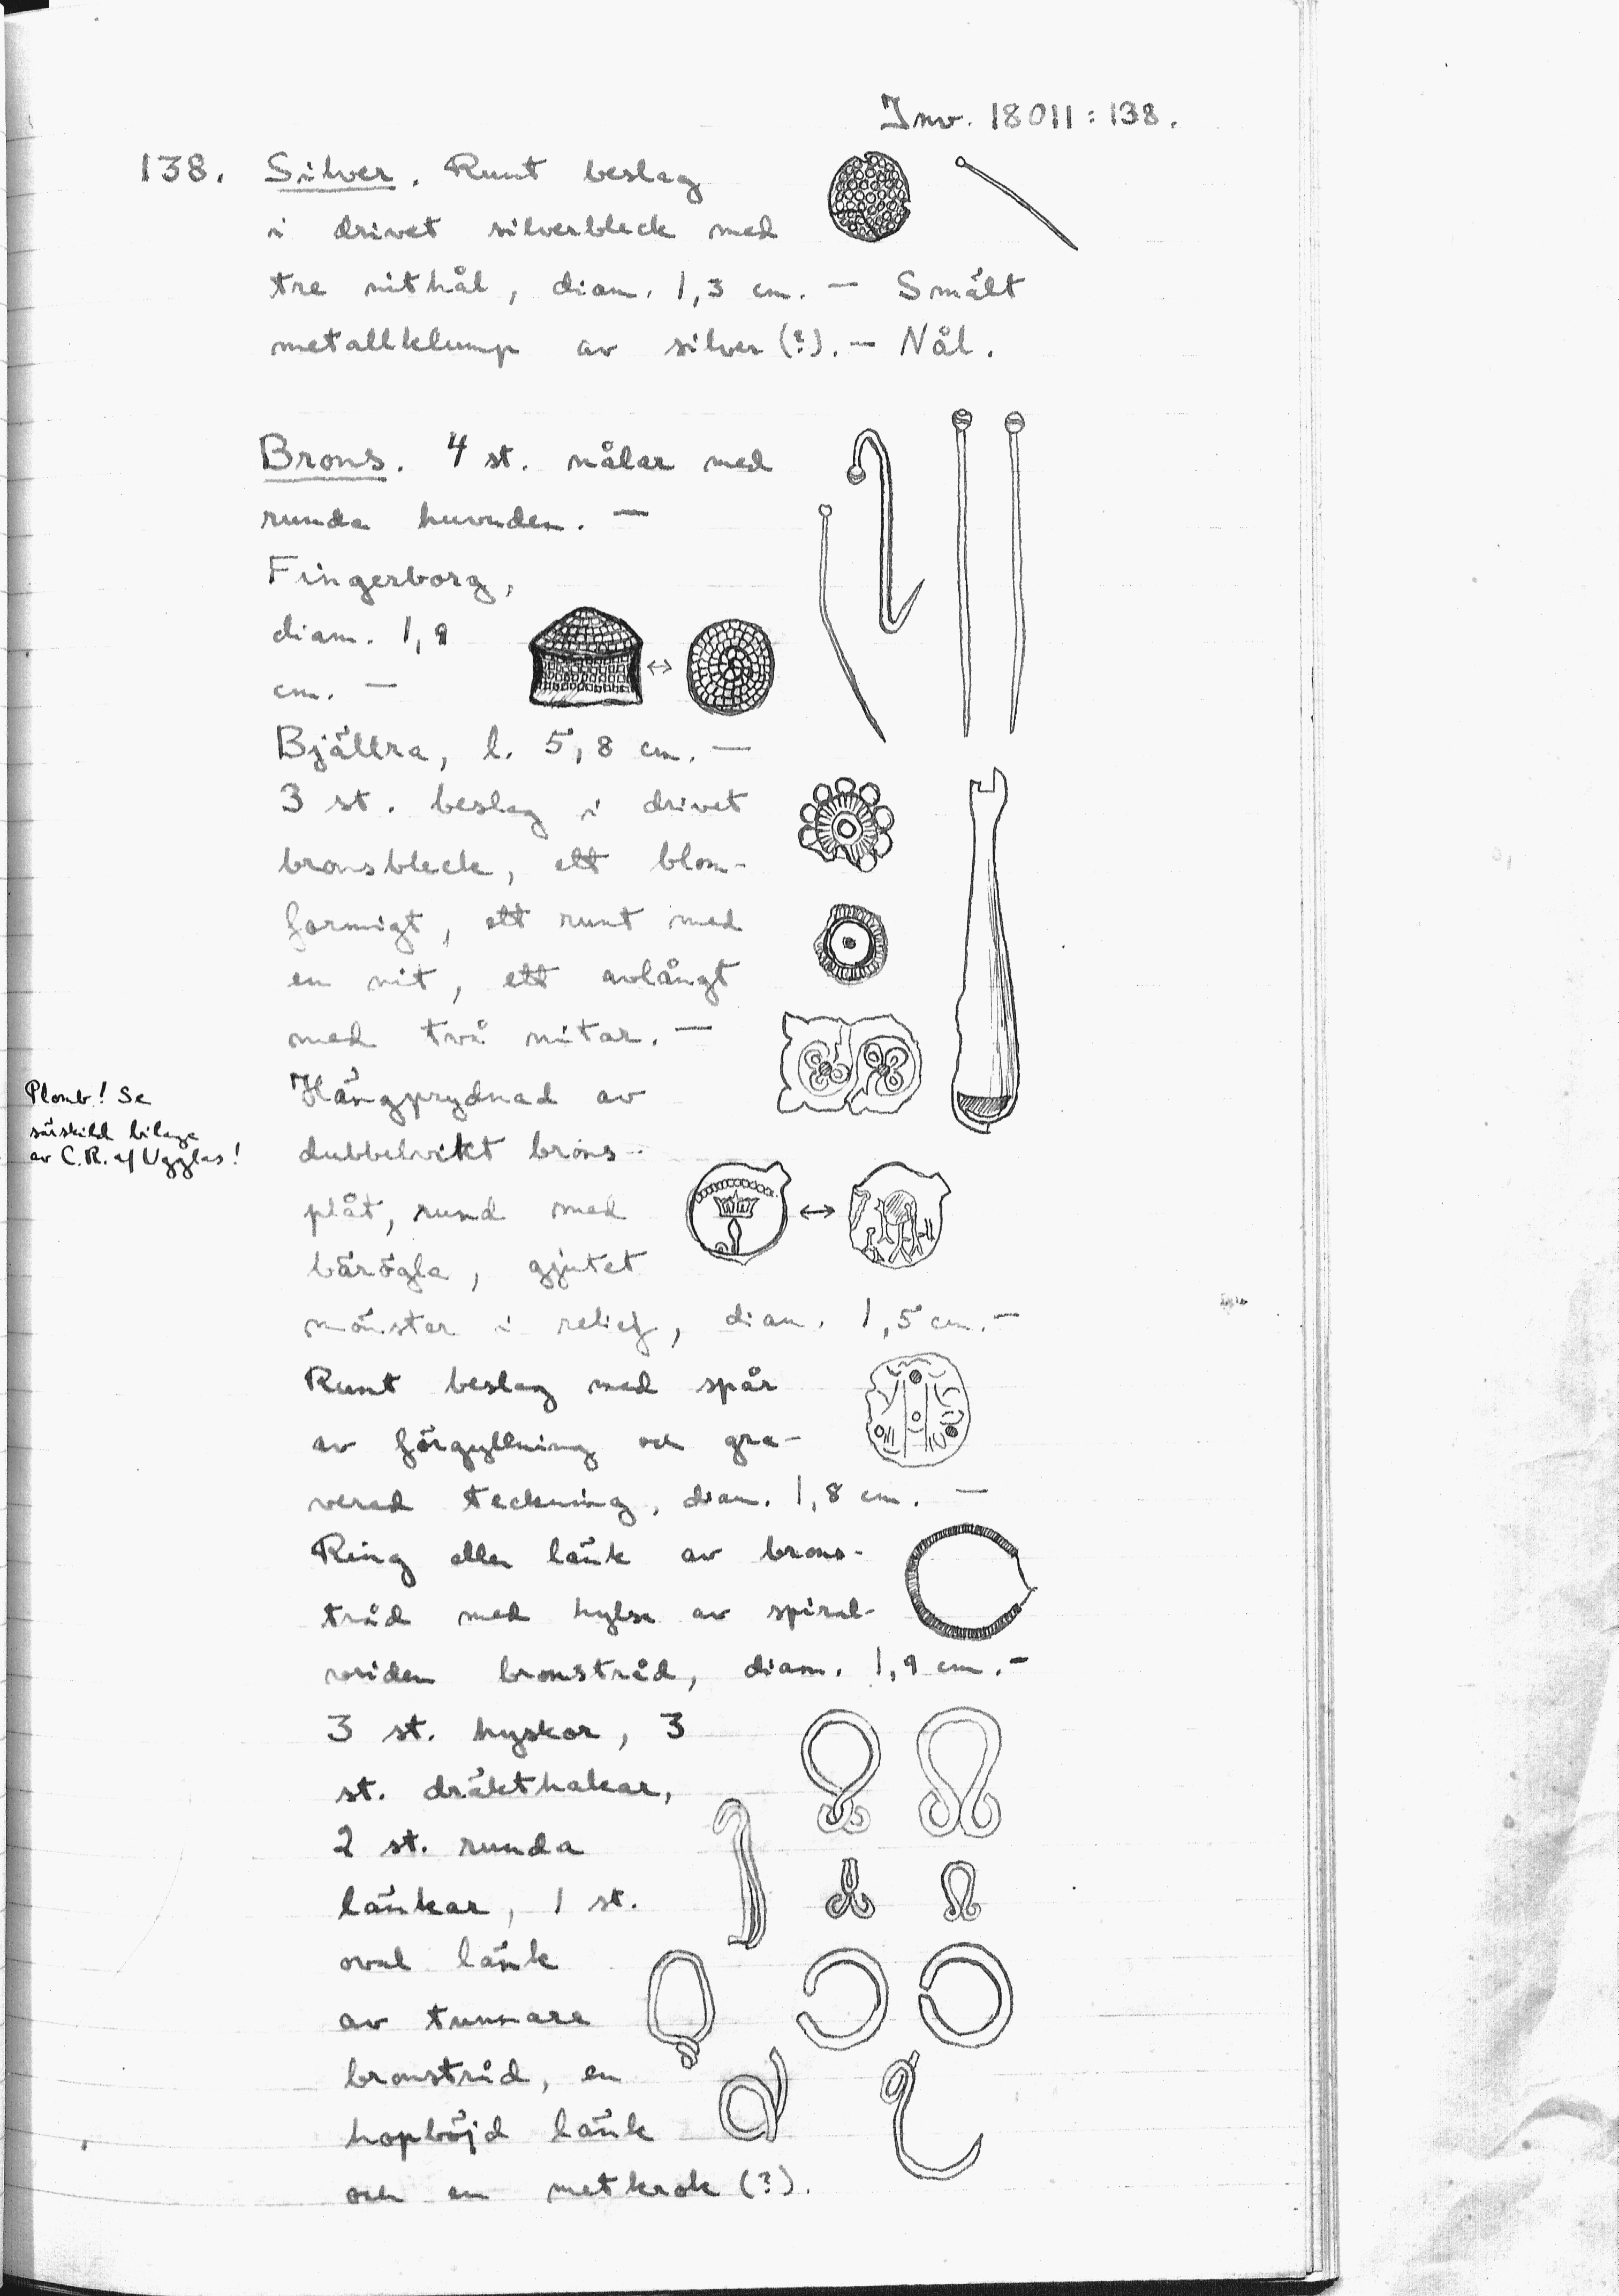 Inv. 18011:138.
138. Silver. Runt beslag
i drivet silverbleck med
tre nithål, diam. 1,3 cm. — Smält
metallklump av silver (?). — Nål.
Brons. 4 st. nålar med
runda huvuden. —
Fingerborg,
diam. 1,9
cm. —
Bjällra, l. 5,8 cm. —
3 st. beslag i drivet
bronsbleck, ett blom-
formigt, ett runt med
en nit, ett avlångt
med två nitar. —
Plomb! Se
särskild bilaga
av C.R. af Ugglas!
Hängprydnad av
dubbelvikt brons-
plåt, rund med
bärögla, gjutet
mönster i relief, diam. 1,5 cm. —
Runt beslag med spår
av förgyllning och gra-
verad teckning, diam. 1,8 cm. —
Ring eller länk av brons-
tråd med hylsa av spiral-
vriden bronstråd, diam. 1,9 cm. —
3 st. hyskor, 3
st. dräkthakar,
2 st. runda
länkar, 1 st.
oval länk
av tunnare
bronstråd, en
hopböjd länk
och en metkrok (?).